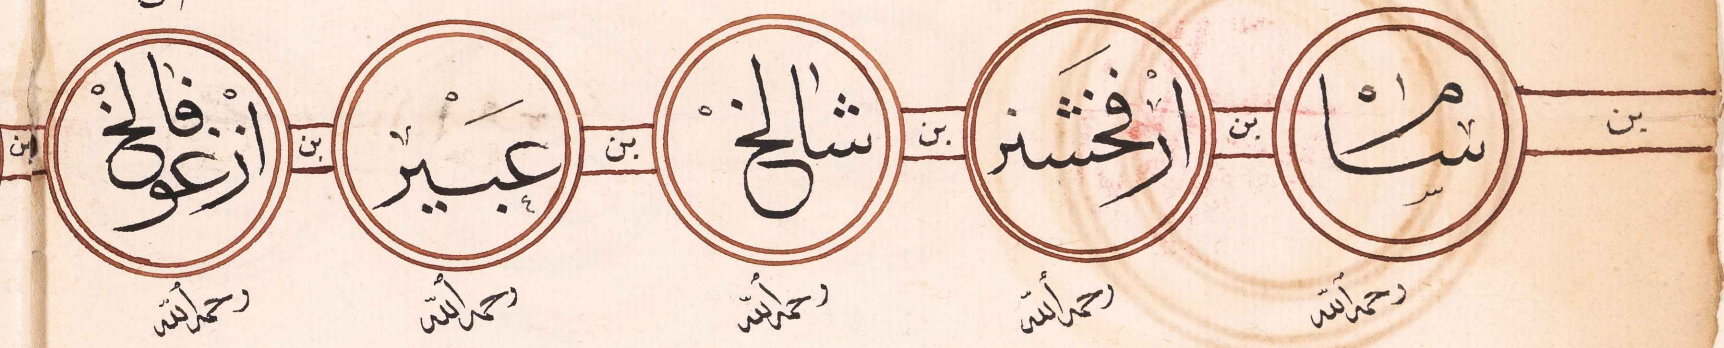 بن سام بن ارفخشنر بن شالخ بن عبير بن ارغو فالخ بن
رحمه الله رحمه الله رحمه الله رحمه الله رحمه الله